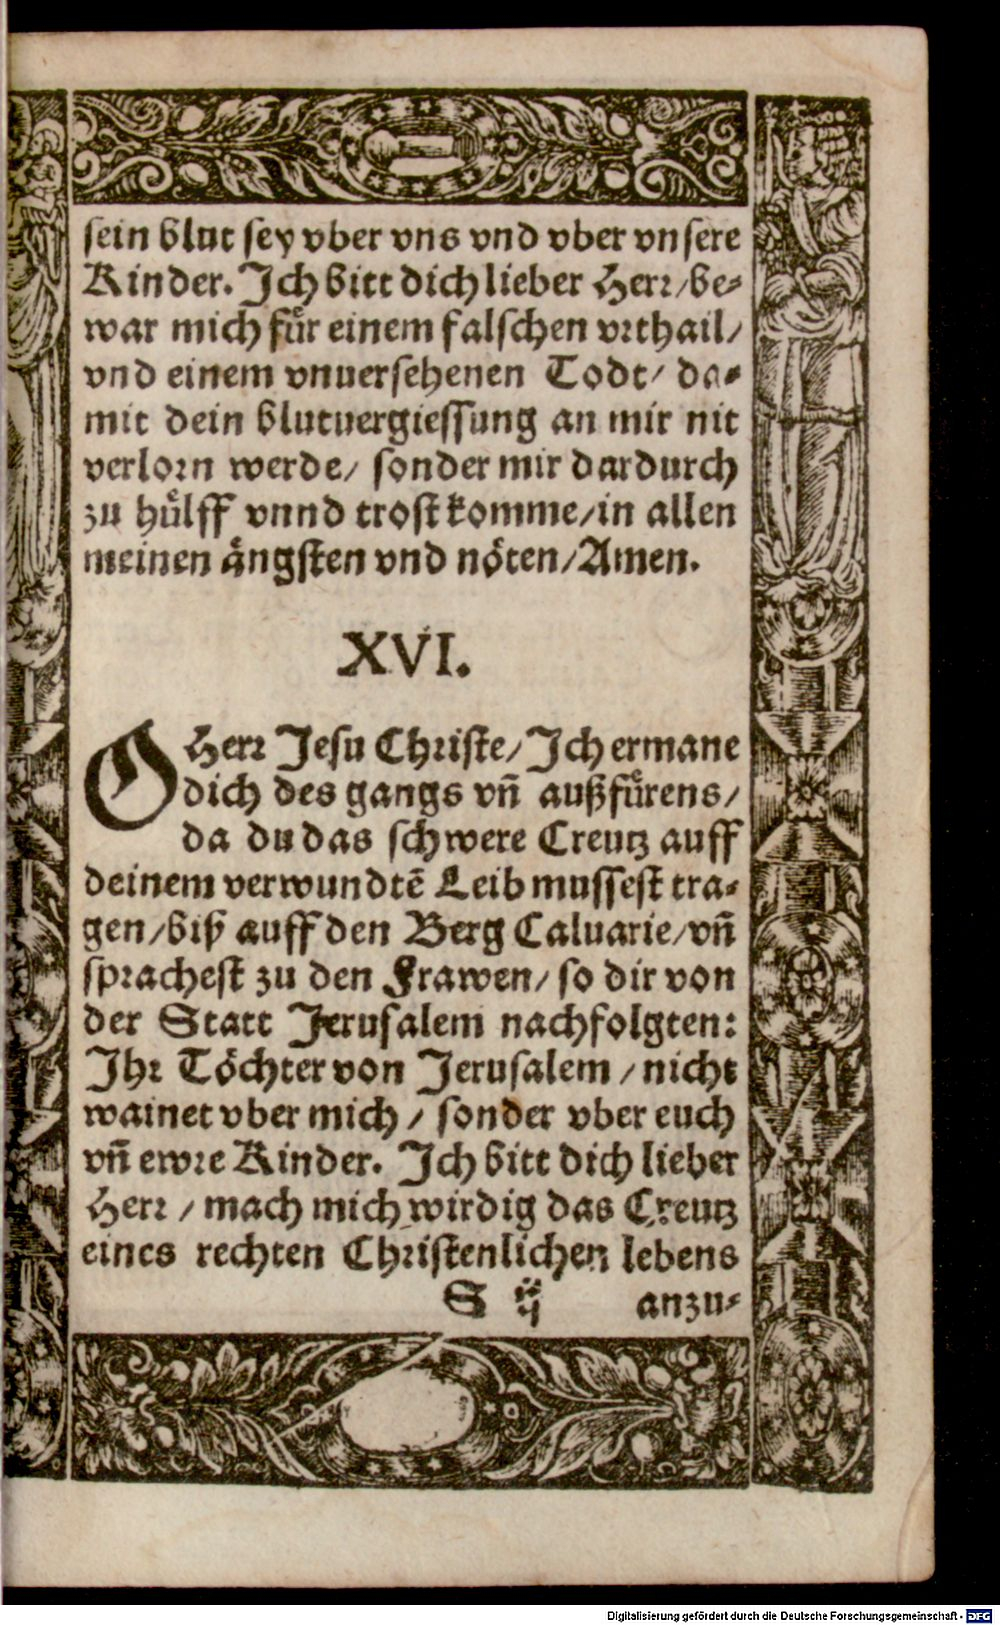 sein blut sey vber vns vnd vber vnsere
Kinder. Jch bitt dich lieber Herr/be-
war mich fuͤr einem falschen vrthail/
vnd einem vnuersehenen Todt/ da-
mit dein blutuergiessung an mir nit
verlorn werde/ sonder mir dardurch
zu huͤlff vnnd trost komme/in allen
meinen aͤngsten vnd noͤten/Amen.
XVI.
O Herr Jesu Christe/Jch ermane
dich des gangs vñ außfuͤrens/
da du das schwere Creutz auff
deinem verwundtẽ Leib mussest tra-
gen/biß auff den Berg Caluarie/vñ
sprachest zu den Frawen/so dir von
der Statt Jerusalem nachfolgten:
Jhr Toͤchter von Jerusalem/nicht
wainet vber mich/ sonder vber euch
vñ ewre Kinder. Jch bitt dich lieber
Herr/mach mich wirdig das Creutz
eines rechten Christenlichen lebens
S ij anzu-
Digitalisierung gefördert durch die Deutsche Forschungsgemeinschaft - DFG